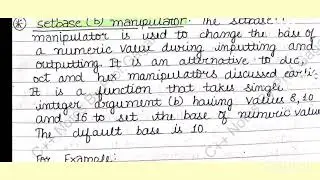 * setbase (b) manipulator: The setbase()
manipulator is used to change the base of
a numeric value during inputting and
outputting. It is an alternative to dec,
oct and hex manipulators discussed
It is a function that takes
integer argument (b) having values 8, 10
and 16 to set the base of numeric
The default base is 10.
For Example: